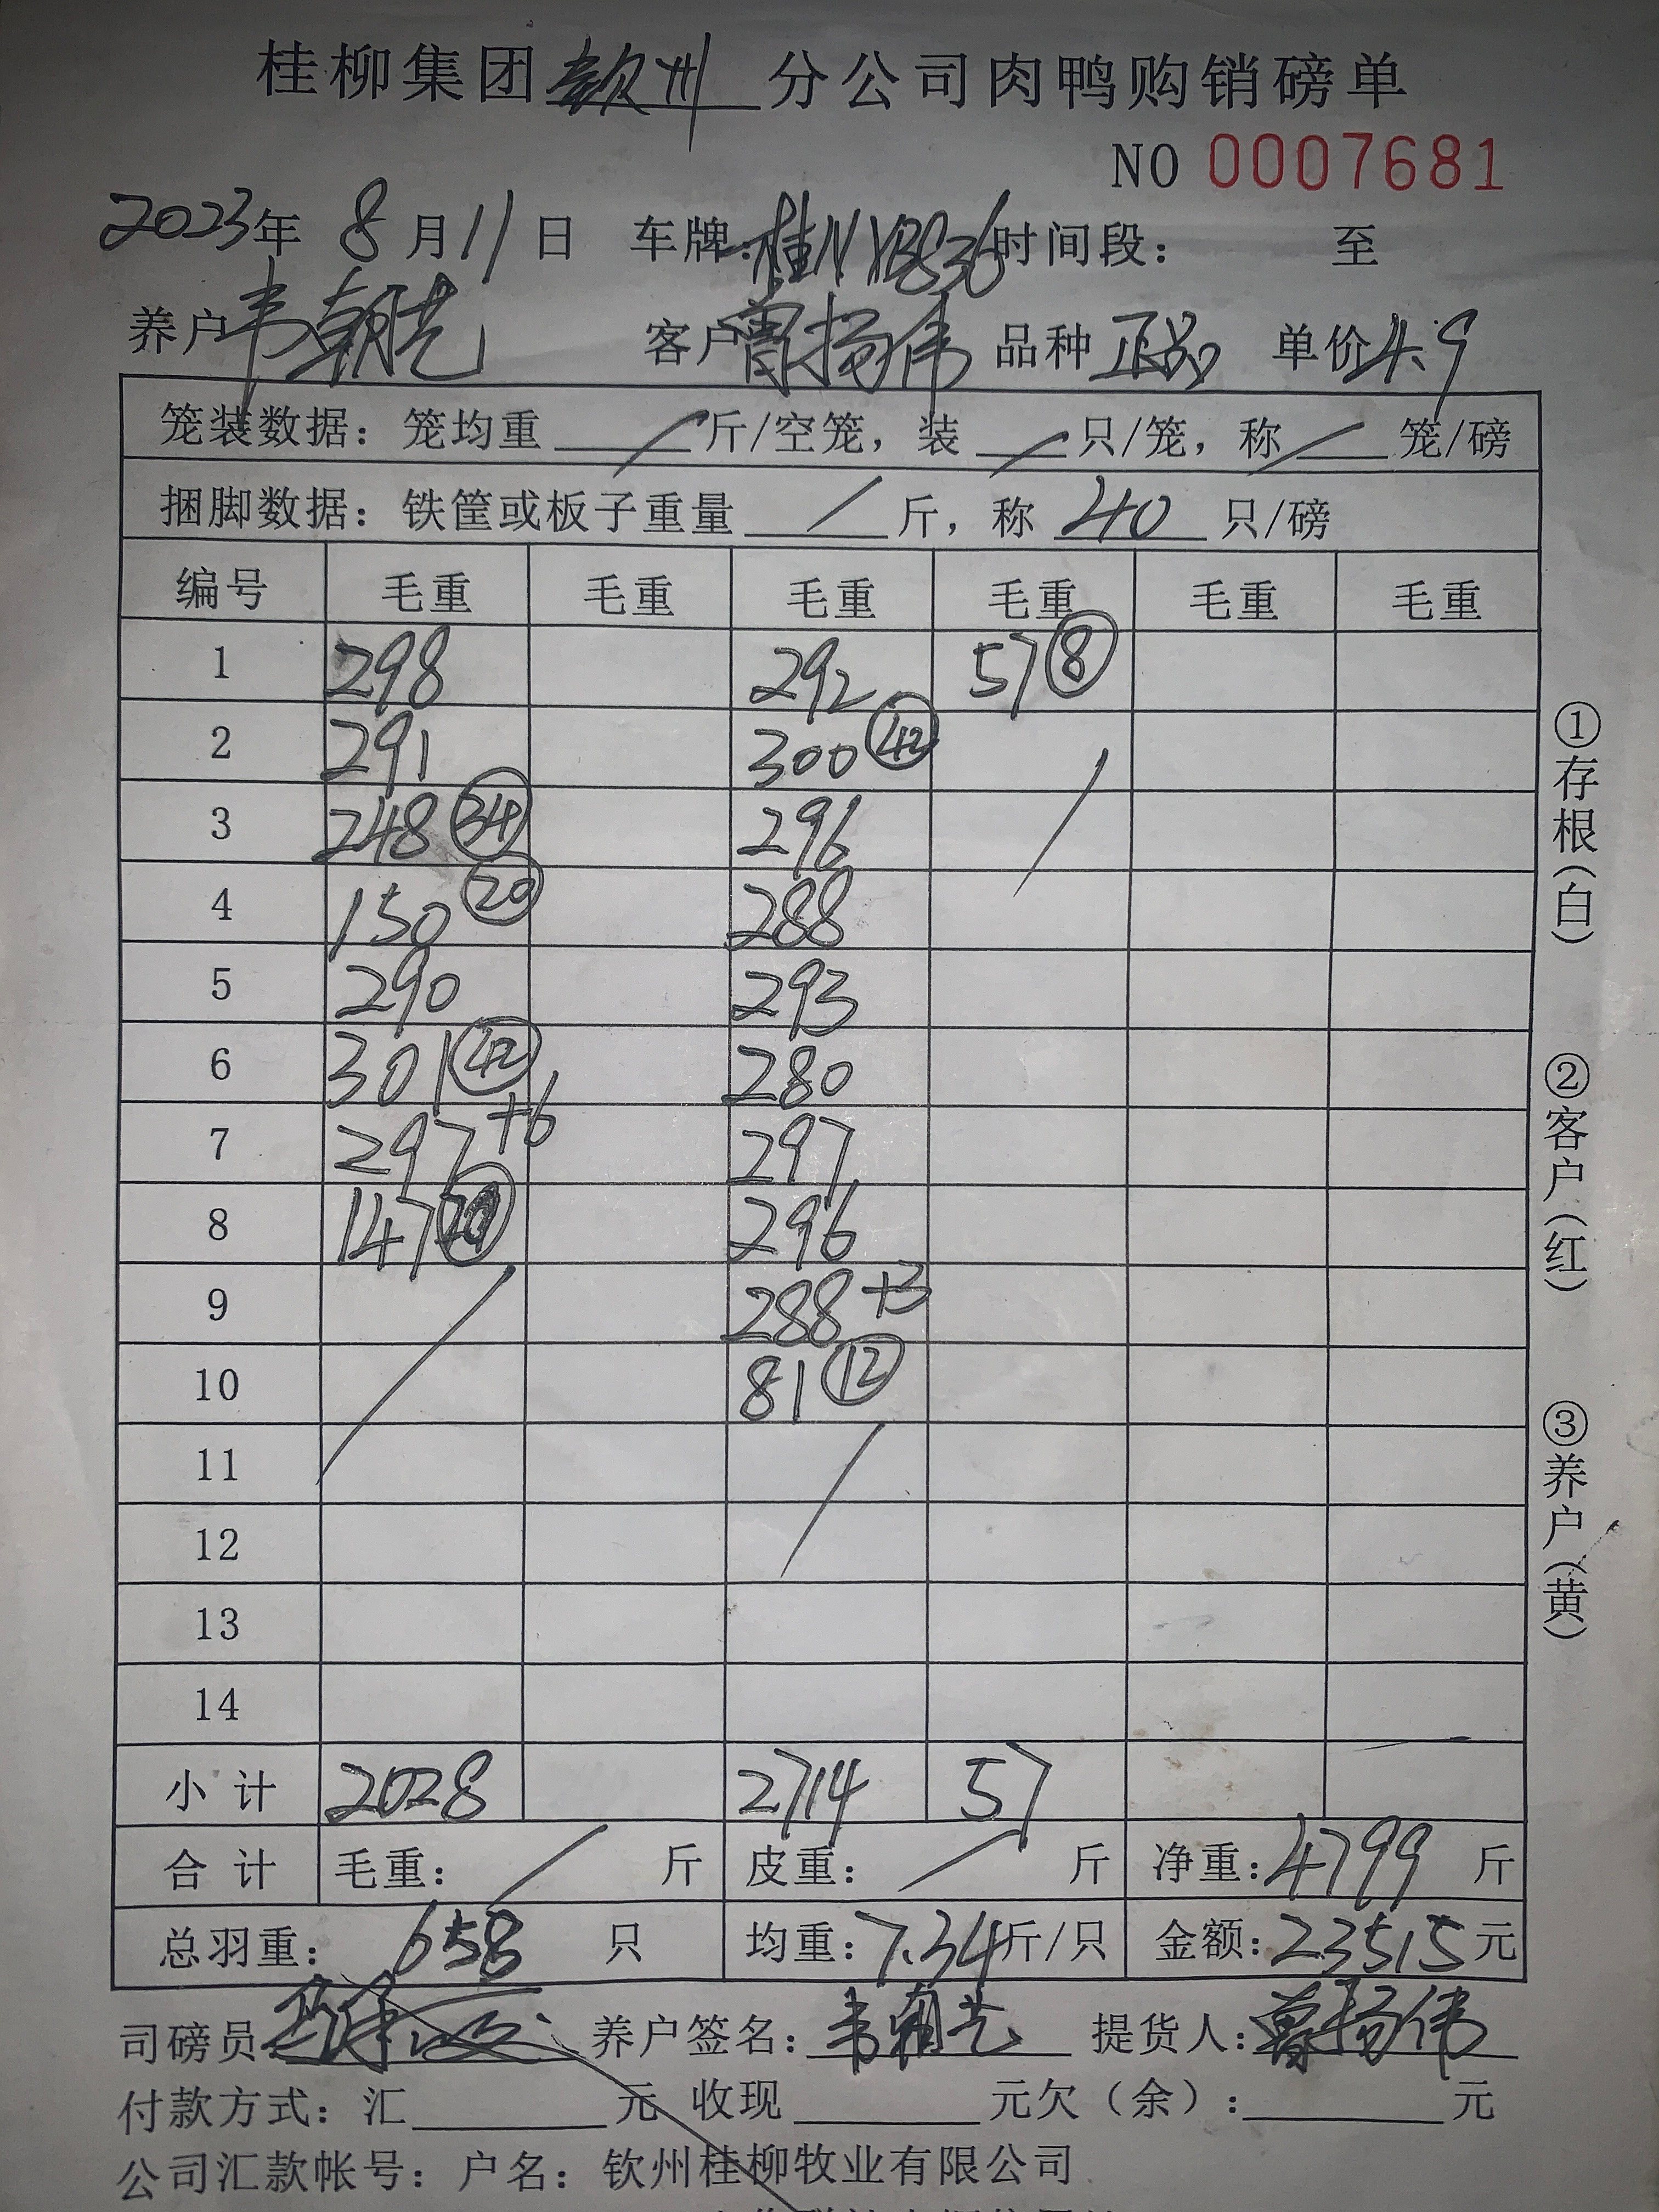 桂柳集团钦州分公司肉鸭购销磅单
NO 0007681
2023年 8月11日 车牌:桂NYB836 时间段: 至
养户韦朝艺 客户曾扬伟 品种正品 单价4.9
笼装数据: 笼均重 / 斤/空笼, 装 / 只/笼, 称 / 笼/磅
捆脚数据: 铁筐或板子重量 / 斤, 称 40 只/磅
编号 毛重 毛重 毛重 毛重 毛重 毛重
1 298 292 57 ⑧
2 291 300 ㊷
3 248 ㉞ 296
4 150 ⑳ 288
5 290 293
6 301 ㊷ 280
7 297 +6 297
8 147 ⑳ 296
9 288 +3
10 81 ⑫
11
12
13
14
小计 2028 2714 57
合计 毛重: / 斤 皮重: / 斤 净重:4799 斤
总羽重: 658 只 均重:7.34斤/只 金额:23515元
司磅员: 养户签名:韦朝艺 提货人:曾扬伟
付款方式: 汇 元 收现 元欠(余): 元
公司汇款帐号: 户名: 钦州桂柳牧业有限公司
①存根(白) ②客户(红) ③养户(黄)